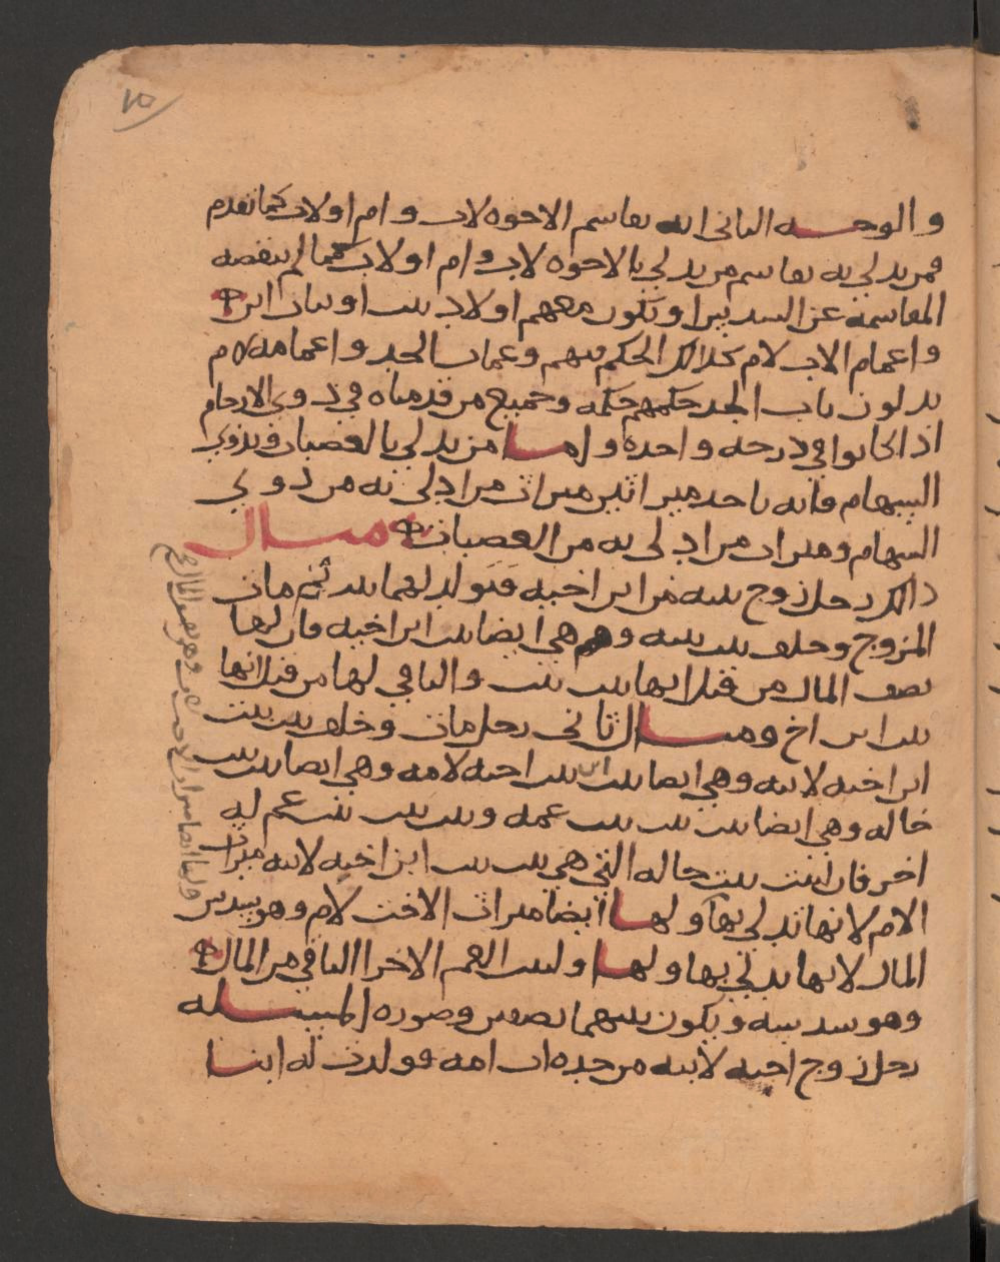 ٧٥
والوجه الثاني انه يقاسم الاخوه لاب وام او لاب كما تقدم
فمن يدلي به يقاسم من يدلي بالاخوه لاب وام او لاب كما لم تنقصه
المقاسمة عن السدس او يكون معهم اولاد بنت او بنات ابن
واعمام الاب لام كذالك الحكم فيهم وعمات الجد واعمامه لام
يدلون باب الجد حكمهم حكمه وجميع من قدمناه في ذوي الارحام
اذا كانوا في درجه واحده واما من يدلي بالعصبات وبذوي
السهام فانه ياخد ميراثين ميراث من ادلى به من ذوي
السهام وميراث من ادلى به من العصبات مسال
ذالك رجل زوج بنته من ابن اخيه فتولد لهما بنت ثم مات
المزوج وخلف بنت بنته وهي ايضا بنت ابن اخيه فان لها
نصف المال من قبل انها بنت بنت والباقي لها من قبل انها
بنت ابن اخ ومسال ثاني رجل مات وخلف بنت بنت
ابن اخيه لابيه وهي ايضا بنت ابن بنت اخيه لامه وهي ايضا بنت بنت
خاله وهي ايضا بنت بنت بنت عمه وبنت بنت بنت عم له
اخر فان لبنت بنت خاله التي هي بنت بنت ابن اخيه لابيه ميراث
الام لانها تدلي بها ولها ايضا ميراث الاخت لام وهو سدس
المال لانها تدلي بها ولها ولبنت العم الاخر الباقي من المال
وهو سدسه ويكون بينهما نصفين وصورة المسله
رجل زوج اخيه لابيه من جده ام امه فولدت له ابنا